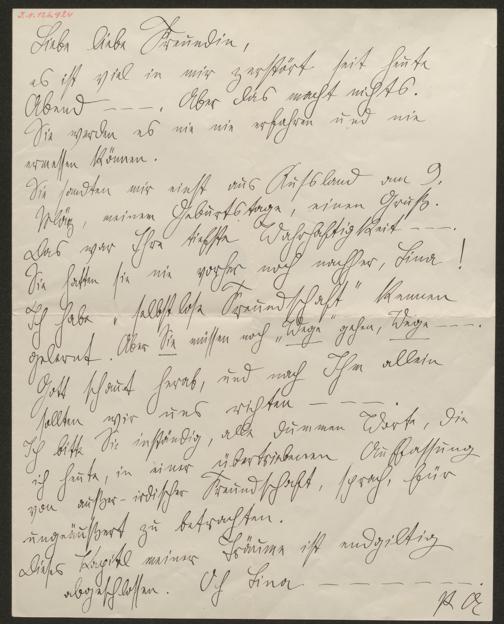 Liebe liebe Freundin,
es ist viel in mir zerstört seit heute
Abend ---. Aber das macht nichts.
Sie werden es nie nie erfahren und nie
ermessen können.
Sie sandten mir einst aus Rußland am 9.
März, meinem Geburtstage, einen Gruß.
Das war Ihre tiefste Wahrhaftigkeit ---.
Sie hatten sie nie vorher noch nachher, Lina!
Ich habe „selbstlose Freundschaft" kennen
gelernt. Aber Sie müssen noch „Wege" gehen, Wege ---.
Gott schaut herab, und nach Ihm allein
sollten wir uns richten ----.
Ich bitte Sie inständig, alle dummen Worte, die
ich heute, in einer übertriebenen Auffassung
von außer-irdischer Freundschaft, sprach, für
ungeäußert zu betrachten.
Dieses Kapitl meiner Träume ist endgiltig
abgeschlossen. Oh Lina --------.
P. A.